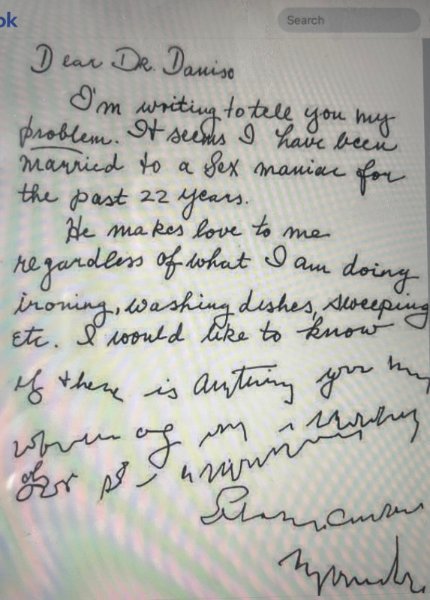 ok
Search
Dear Dr. Daniso
I'm writing to tell you my
problem. It seems I have been
married to a Sex maniac for
the past 22 years.
He makes love to me
regardless of what I am doing
ironing, washing dishes, sweeping
Etc. I would like to know
if there is anything you